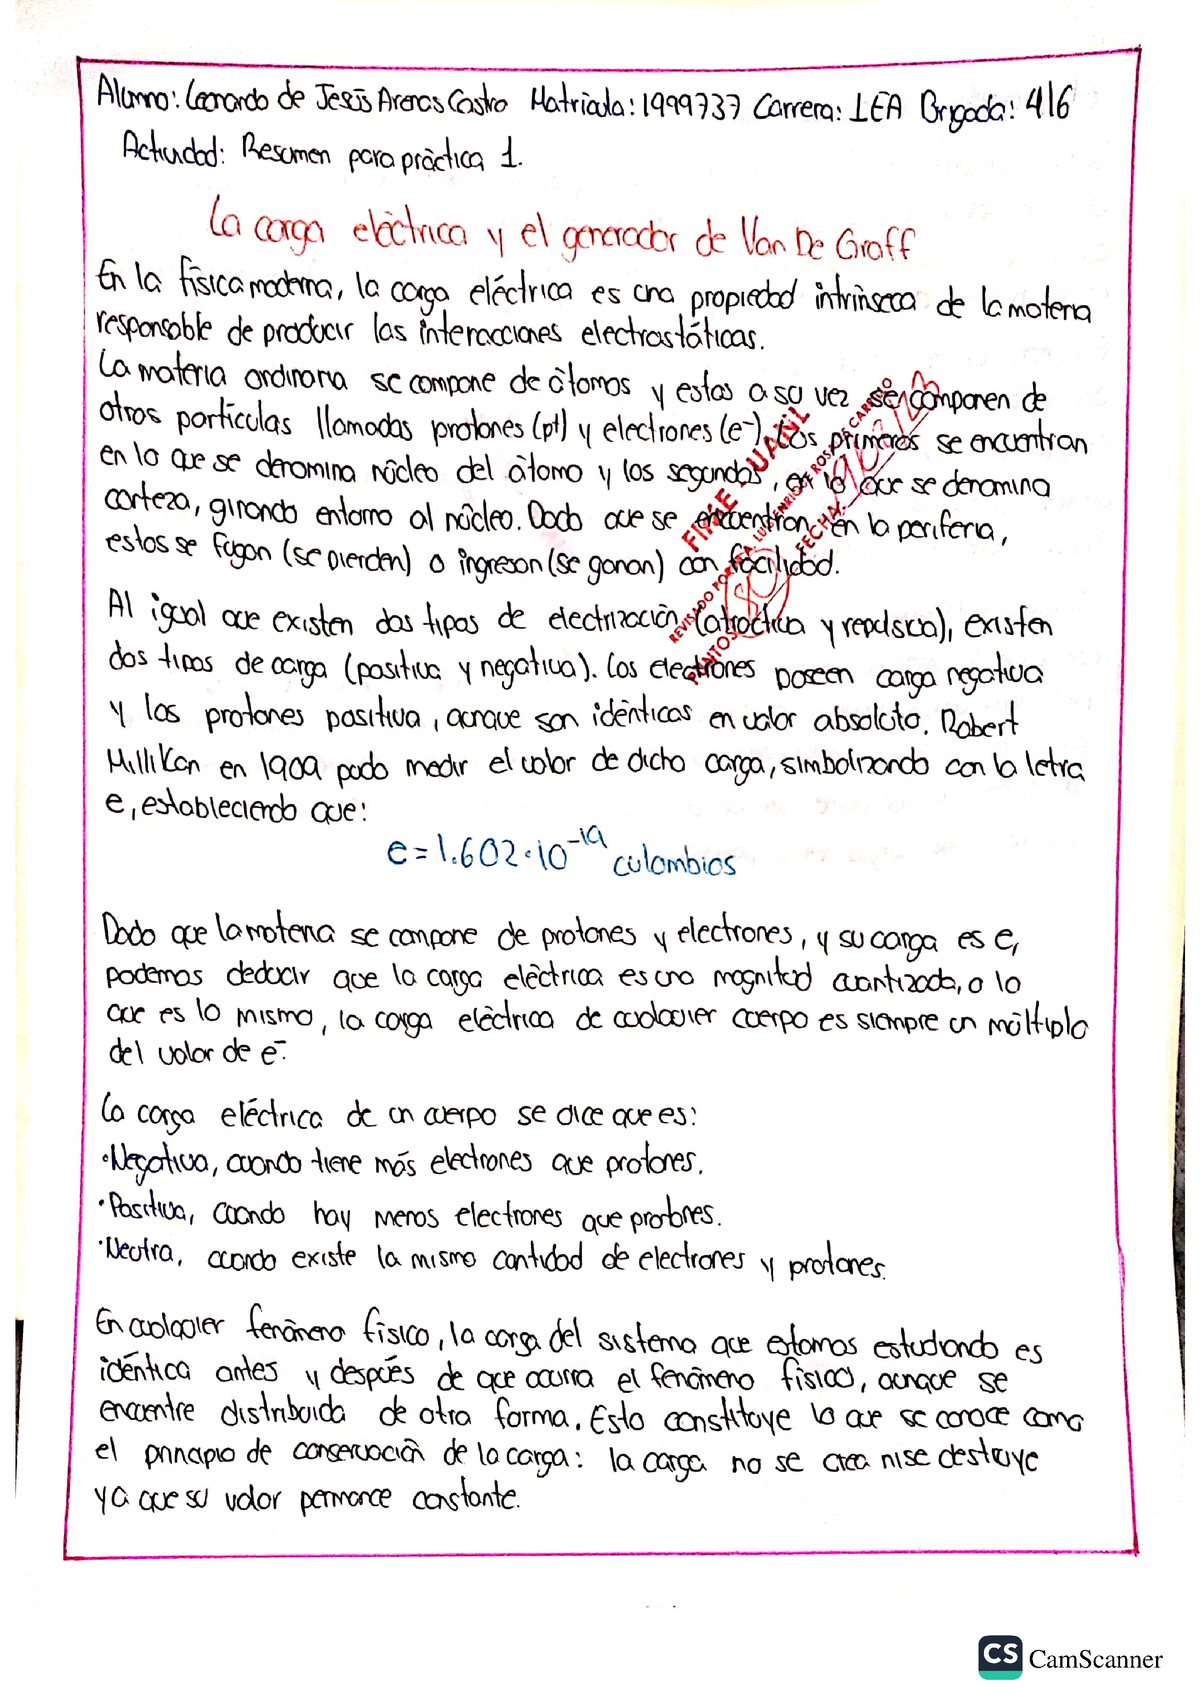 Alumno: Leonardo de Jesús Arenas Castro Matricula: 1999737 Carrera: IEA Brigada: 416
Actividad: Resumen para práctica 1.
La carga eléctrica y el generador de Van De Graff
En la física moderna, la carga eléctrica es una propiedad intrínseca de la materia
responsable de producir las interacciones electrostáticas.
La materia ordinaria se compone de átomos y estas a su vez se componen de
otras partículas llamadas protones (p+) y electrones (e-). Los primeros se encuentran
en lo que se denomina núcleo del átomo y los segundos, en lo que se denomina
corteza, girando entorno al núcleo. Dado que se encuentran en la periferia,
estos se fugan (se pierden) o ingresan (se ganan) con facilidad.
FIME - UANL
REVISADO POR
FECHA:
PUNTOS 80
Al igual que existen dos tipos de electrización (atractiva y repulsiva), existen
dos tipos de carga (positiva y negativa). Los electrones poseen carga negativa
y los protones positiva, aunque son idénticas en valor absoluto. Robert
Millikan en 1909 pudo medir el valor de dicho carga, simbolizando con la letra
e, estableciendo que:
e = 1.602·10⁻¹⁹ culombios
Dado que la materia se compone de protones y electrones, y su carga es e,
podemos deducir que la carga eléctrica es una magnitud cuantizada, o lo
que es lo mismo, la carga eléctrica de cualquier cuerpo es siempre un múltiplo
del valor de e⁻.
La carga eléctrica de un cuerpo se dice que es:
•Negativa, cuando tiene más electrones que protones.
•Positiva, cuando hay menos electrones que protones.
•Neutra, cuando existe la misma cantidad de electrones y protones.
En cualquier fenómeno físico, la carga del sistema que estamos estudiando es
idéntica antes y después de que ocurra el fenómeno físico, aunque se
encuentre distribuida de otra forma. Esto constituye lo que se conoce como
el principio de conservación de la carga: la carga no se crea ni se destruye
ya que su valor permance constante.
CS CamScanner